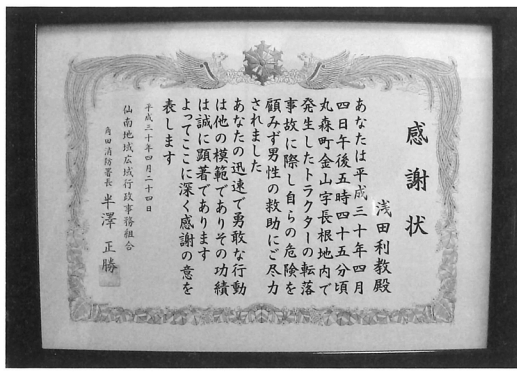 感謝状
浅田利教殿
あなたは平成三十年四月
四日午後五時四十五分頃
丸森町金山字長根地内で
発生したトラクターの転落
事故に際し自らの危険を
顧みず男性の救助にご尽力
されました
あなたの迅速で勇敢な行動
は他の模範でありその功績
は誠に顕著であります
よってここに深く感謝の意を
表します
平成三十年四月二十四日
仙南地域広域行政事務組合
角田消防署長 半澤正勝